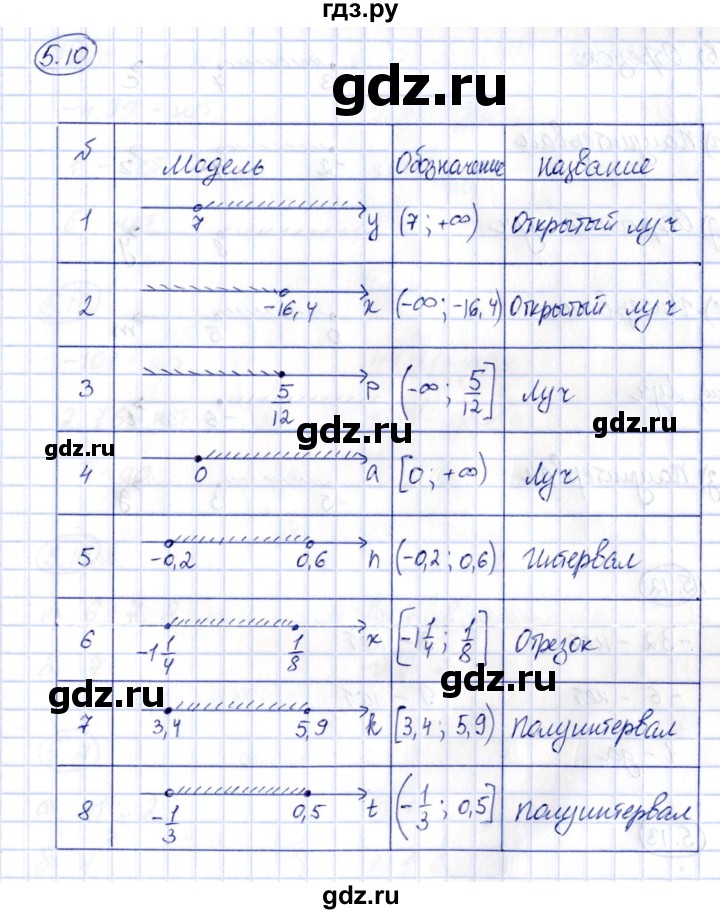 гдз.ру
5.10
gdz.ru
№ Модель Обозначение Название
1 7 y (7; +∞) Открытый луч
2 -16,4 x (-∞; -16,4) Открытый луч
3 5/12 p (-∞; 5/12] Луч
gdz.ru gdz.ru
4 0 a [0; +∞) Луч
5 -0,2 0,6 n (-0,2; 0,6) Интервал
6 -1 1/4 1/8 x [-1 1/4; 1/8] Отрезок
gdz.ru gdz.ru
7 3,4 5,9 k [3,4; 5,9) Полуинтервал
8 -1/3 0,5 t (-1/3; 0,5] Полуинтервал
gdz.ru